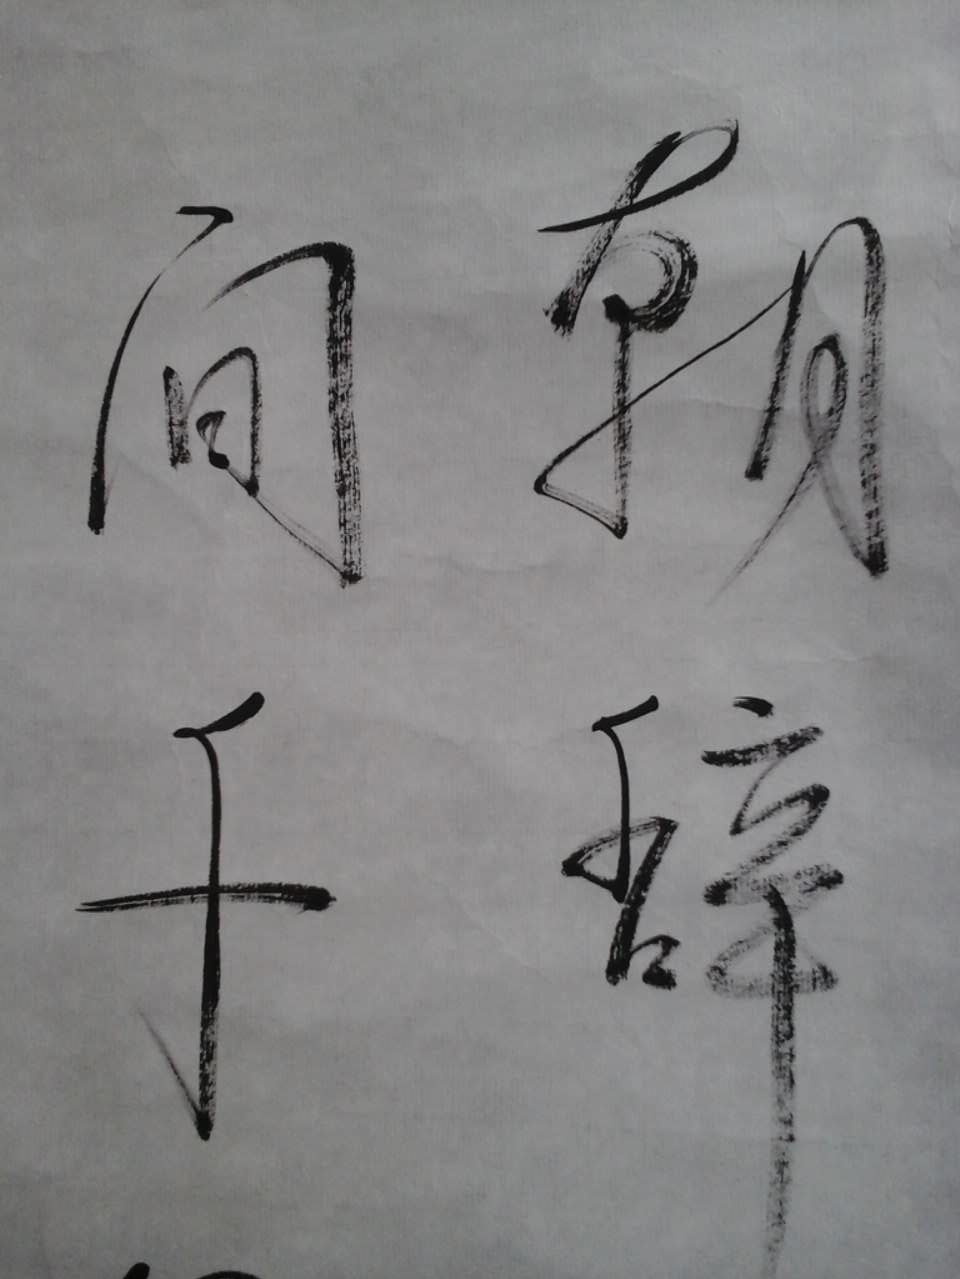 朝辞
间千